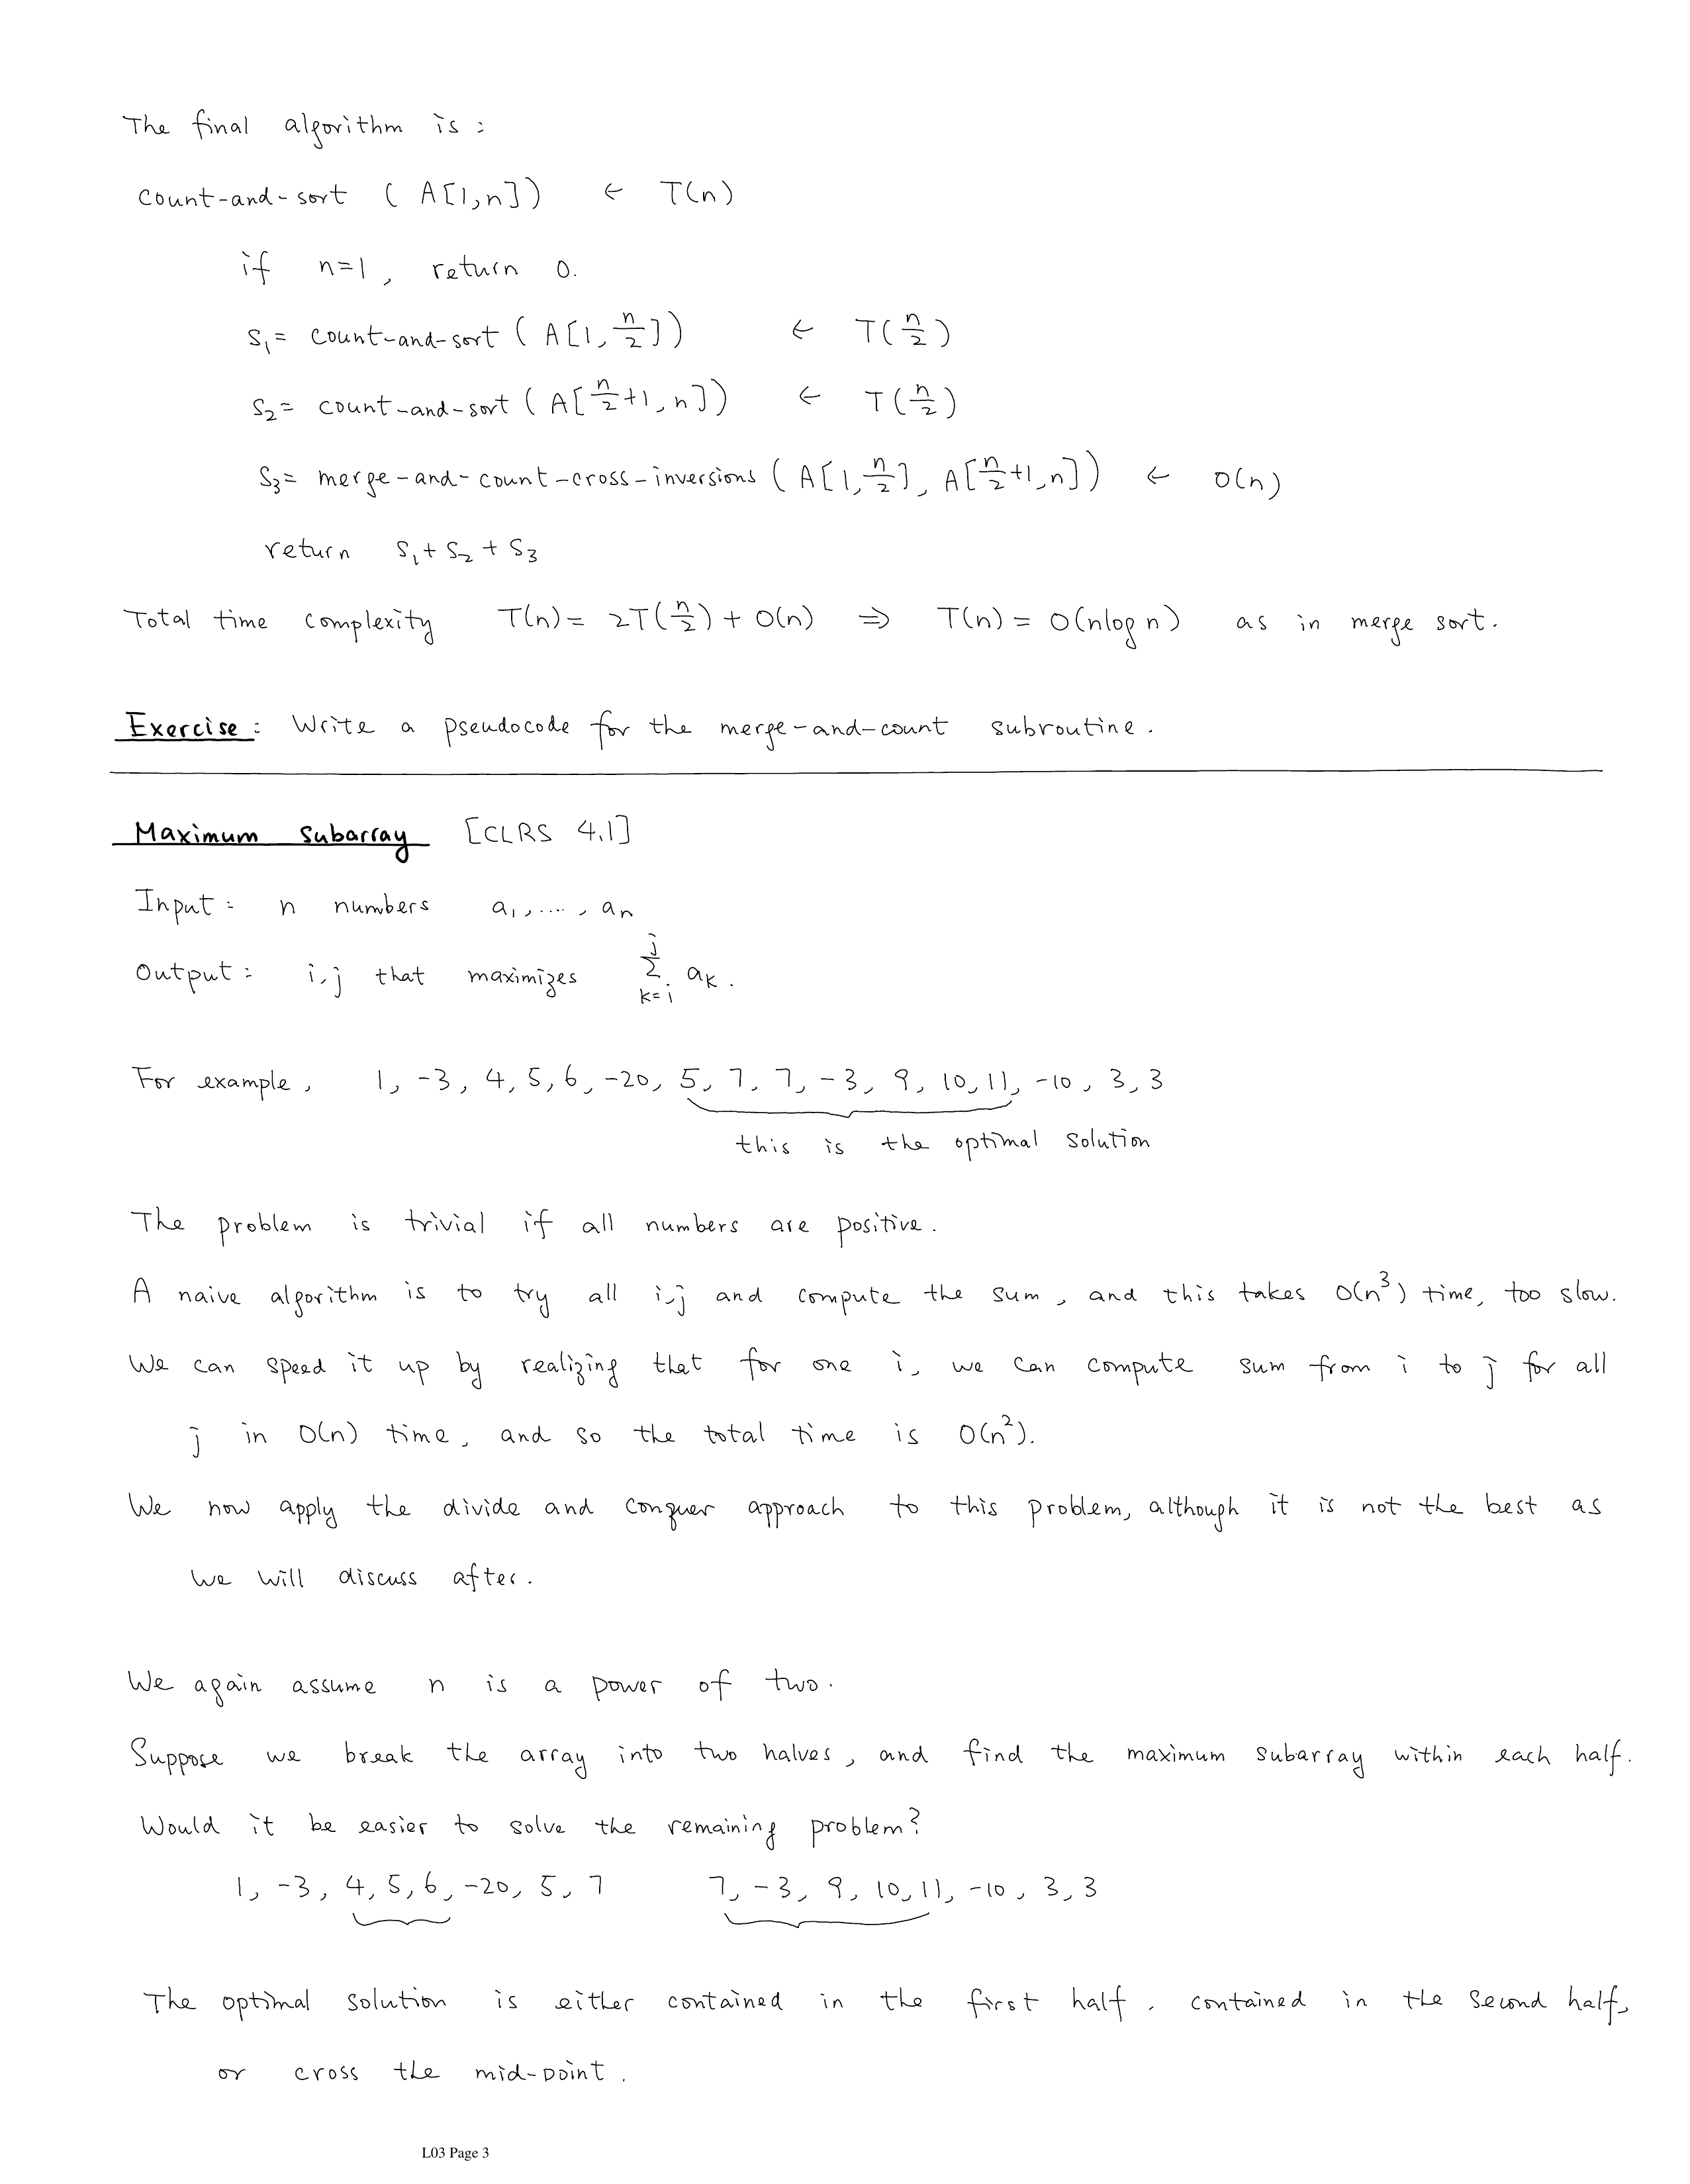 The final algorithm is :
count-and-sort ( A[1,n]) ← T(n)
if n=1, return 0.
S₁= count-and-sort ( A[1, n/2]) ← T(n/2)
S₂= count-and-sort ( A[n/2+1, n]) ← T(n/2)
S₃= merge-and-count-cross-inversions ( A[1, n/2], A[n/2+1, n]) ← O(n)
return S₁ + S₂ + S₃
Total time complexity T(n) = 2T(n/2) + O(n) ⇒ T(n) = O(nlog n) as in merge sort.
Exercise: Write a pseudocode for the merge-and-count subroutine.
Maximum Subarray [CLRS 4.1]
Input: n numbers a₁, ...., aₙ
Output: i,j that maximizes ∑_{k=i}^{j} aₖ.
For example, 1, -3, 4, 5, 6, -20, 5, 7, 7, -3, 9, 10, 11, -10, 3, 3
this is the optimal solution
The problem is trivial if all numbers are positive.
A naive algorithm is to try all i,j and compute the sum, and this takes O(n³) time, too slow.
We can speed it up by realizing that for one i, we can compute sum from i to j for all
j in O(n) time, and so the total time is O(n²).
We now apply the divide and conquer approach to this problem, although it is not the best as
we will discuss after.
We again assume n is a power of two.
Suppose we break the array into two halves, and find the maximum subarray within each half.
Would it be easier to solve the remaining problem?
1, -3, 4, 5, 6, -20, 5, 7 7, -3, 9, 10, 11, -10, 3, 3
The optimal solution is either contained in the first half, contained in the second half,
or cross the mid-point.
L03 Page 3